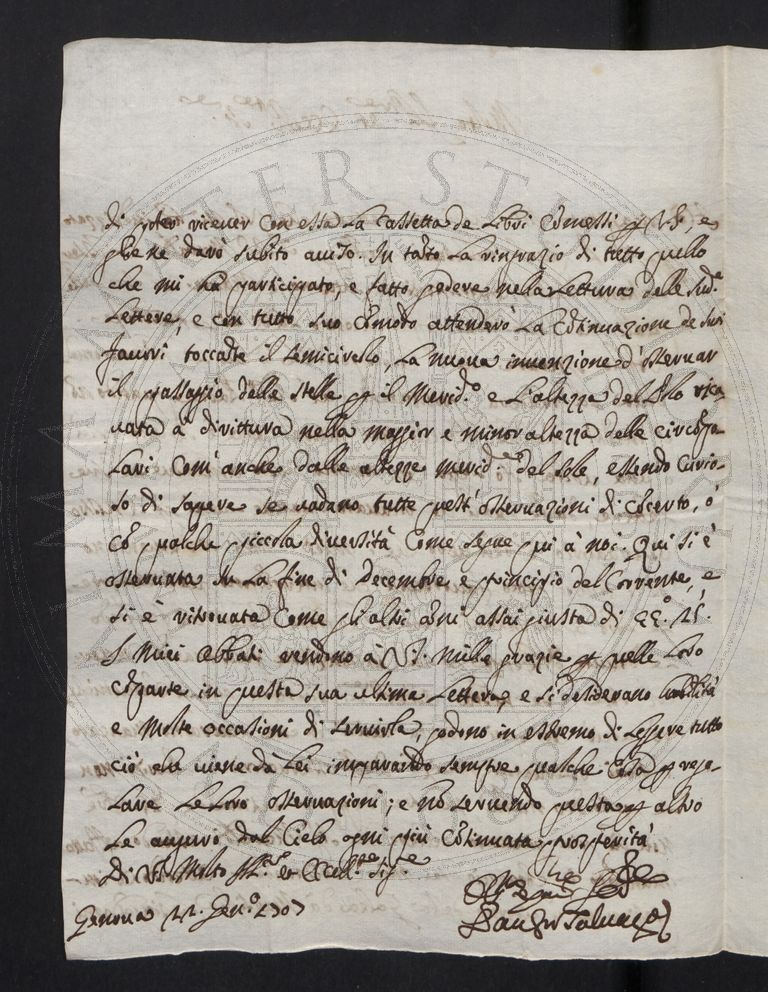 di poter ricever con essa la Cassetta de Libri comessi p VS., e
gliene darò subito aviso. In tãto la ringrazio di tutto quello
che mi hà participato, e fatto godere nella Lettura delle sud.e
Lettere, e con tutto suo comodo attenderò la cõtinuazione de suoi
favori toccãte il semicircolo, la nuova invenzione d'osservar
il passaggio delle stelle p il Merid.o e l'altezza del Polo rica-
vata à dirittura nella maggior e minor altezza delle circõpo-
lari com'anche dalle altezze merid.e del sole, essendo curio-
so di sapere se vadano tutte quest'osservazioni di cõcerto, ò
cõ qualche piccola diversità come segue quì à noi. Quì si è
osservata in la fine di Decembre e principio del Corrente, e
si è ritrovata come gli altri ãni assai giusta di
I miei Abbati rendono à VS. mille grazie p quelle Loro
cõparte in questa sua ultima Lettera, e si desiderano abilità
e molte occasioni di servirla, godono in estremo di leggere tutto
ciò che viene da Lei imparando sempre qualche cosa p rego-
lare le loro osservazioni; e nõ servendo questa p altro
le auguro dal Cielo ogni più cõtinuata prosperità
Di VS. Molto Ill.re et Eccell.te Sig.re
Genova 22. Gen.o 1707
Salvago